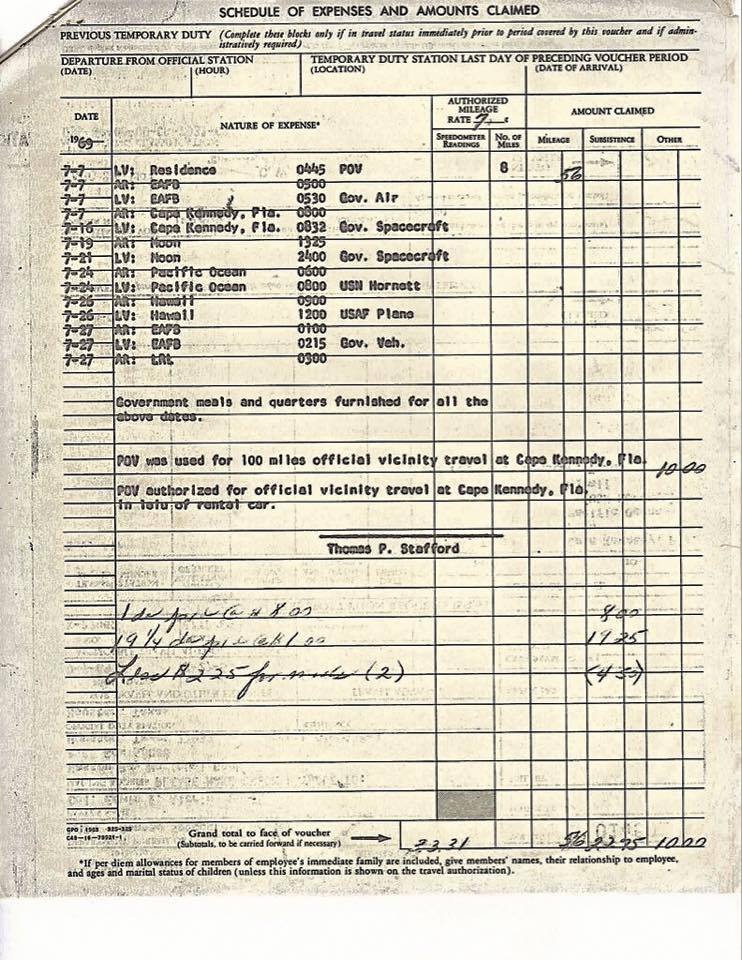 SCHEDULE OF EXPENSES AND AMOUNTS CLAIMED
PREVIOUS TEMPORARY DUTY (Complete these blocks only if in travel status immediately prior to period covered by this voucher and if admin-
istratively required)
DEPARTURE FROM OFFICIAL STATION TEMPORARY DUTY STATION LAST DAY OF PRECEDING VOUCHER PERIOD
(DATE) (HOUR) (LOCATION) (DATE OF ARRIVAL)
DATE NATURE OF EXPENSE* AUTHORIZED MILEAGE RATE 7 c AMOUNT CLAIMED
1969 SPEEDOMETER READINGS NO. OF MILES MILEAGE SUBSISTENCE OTHER
7-7 LV: Residence 0445 POV 8 56
7-7 AR: EAFB 0500
7-7 LV: EAFB 0530 Gov. Air
7-7 AR: Cape Kennedy, Fla. 0800
7-16 LV: Cape Kennedy, Fla. 0832 Gov. Spacecraft
7-19 AR: Moon 1325
7-21 LV: Moon 2400 Gov. Spacecraft
7-24 AR: Pacific Ocean 0600
7-24 LV: Pacific Ocean 0800 USN Hornett
7-26 AR: Hawaii 0900
7-26 LV: Hawaii 1200 USAF Plane
7-27 AR: EAFB 0100
7-27 LV: EAFB 0215 Gov. Veh.
7-27 AR: LRL 0300
Government meals and quarters furnished for all the
above dates.
POV was used for 100 miles official vicinity travel at Cape Kennedy, Fla. 10.00
POV authorized for official vicinity travel at Cape Kennedy, Fla.
in leiu of rental car.
Thomas P. Stafford
1 day 8 00 8.00
19 1/4 1.00 19 25
Less $2.25 for meals (2) (4 50)
GPO : 1968
Grand total to face of voucher 33.31 56 22.75 10.00
(Subtotals, to be carried forward if necessary)
*If per diem allowances for members of employee's immediate family are included, give members' names, their relationship to employee,
and ages and marital status of children (unless this information is shown on the travel authorization).